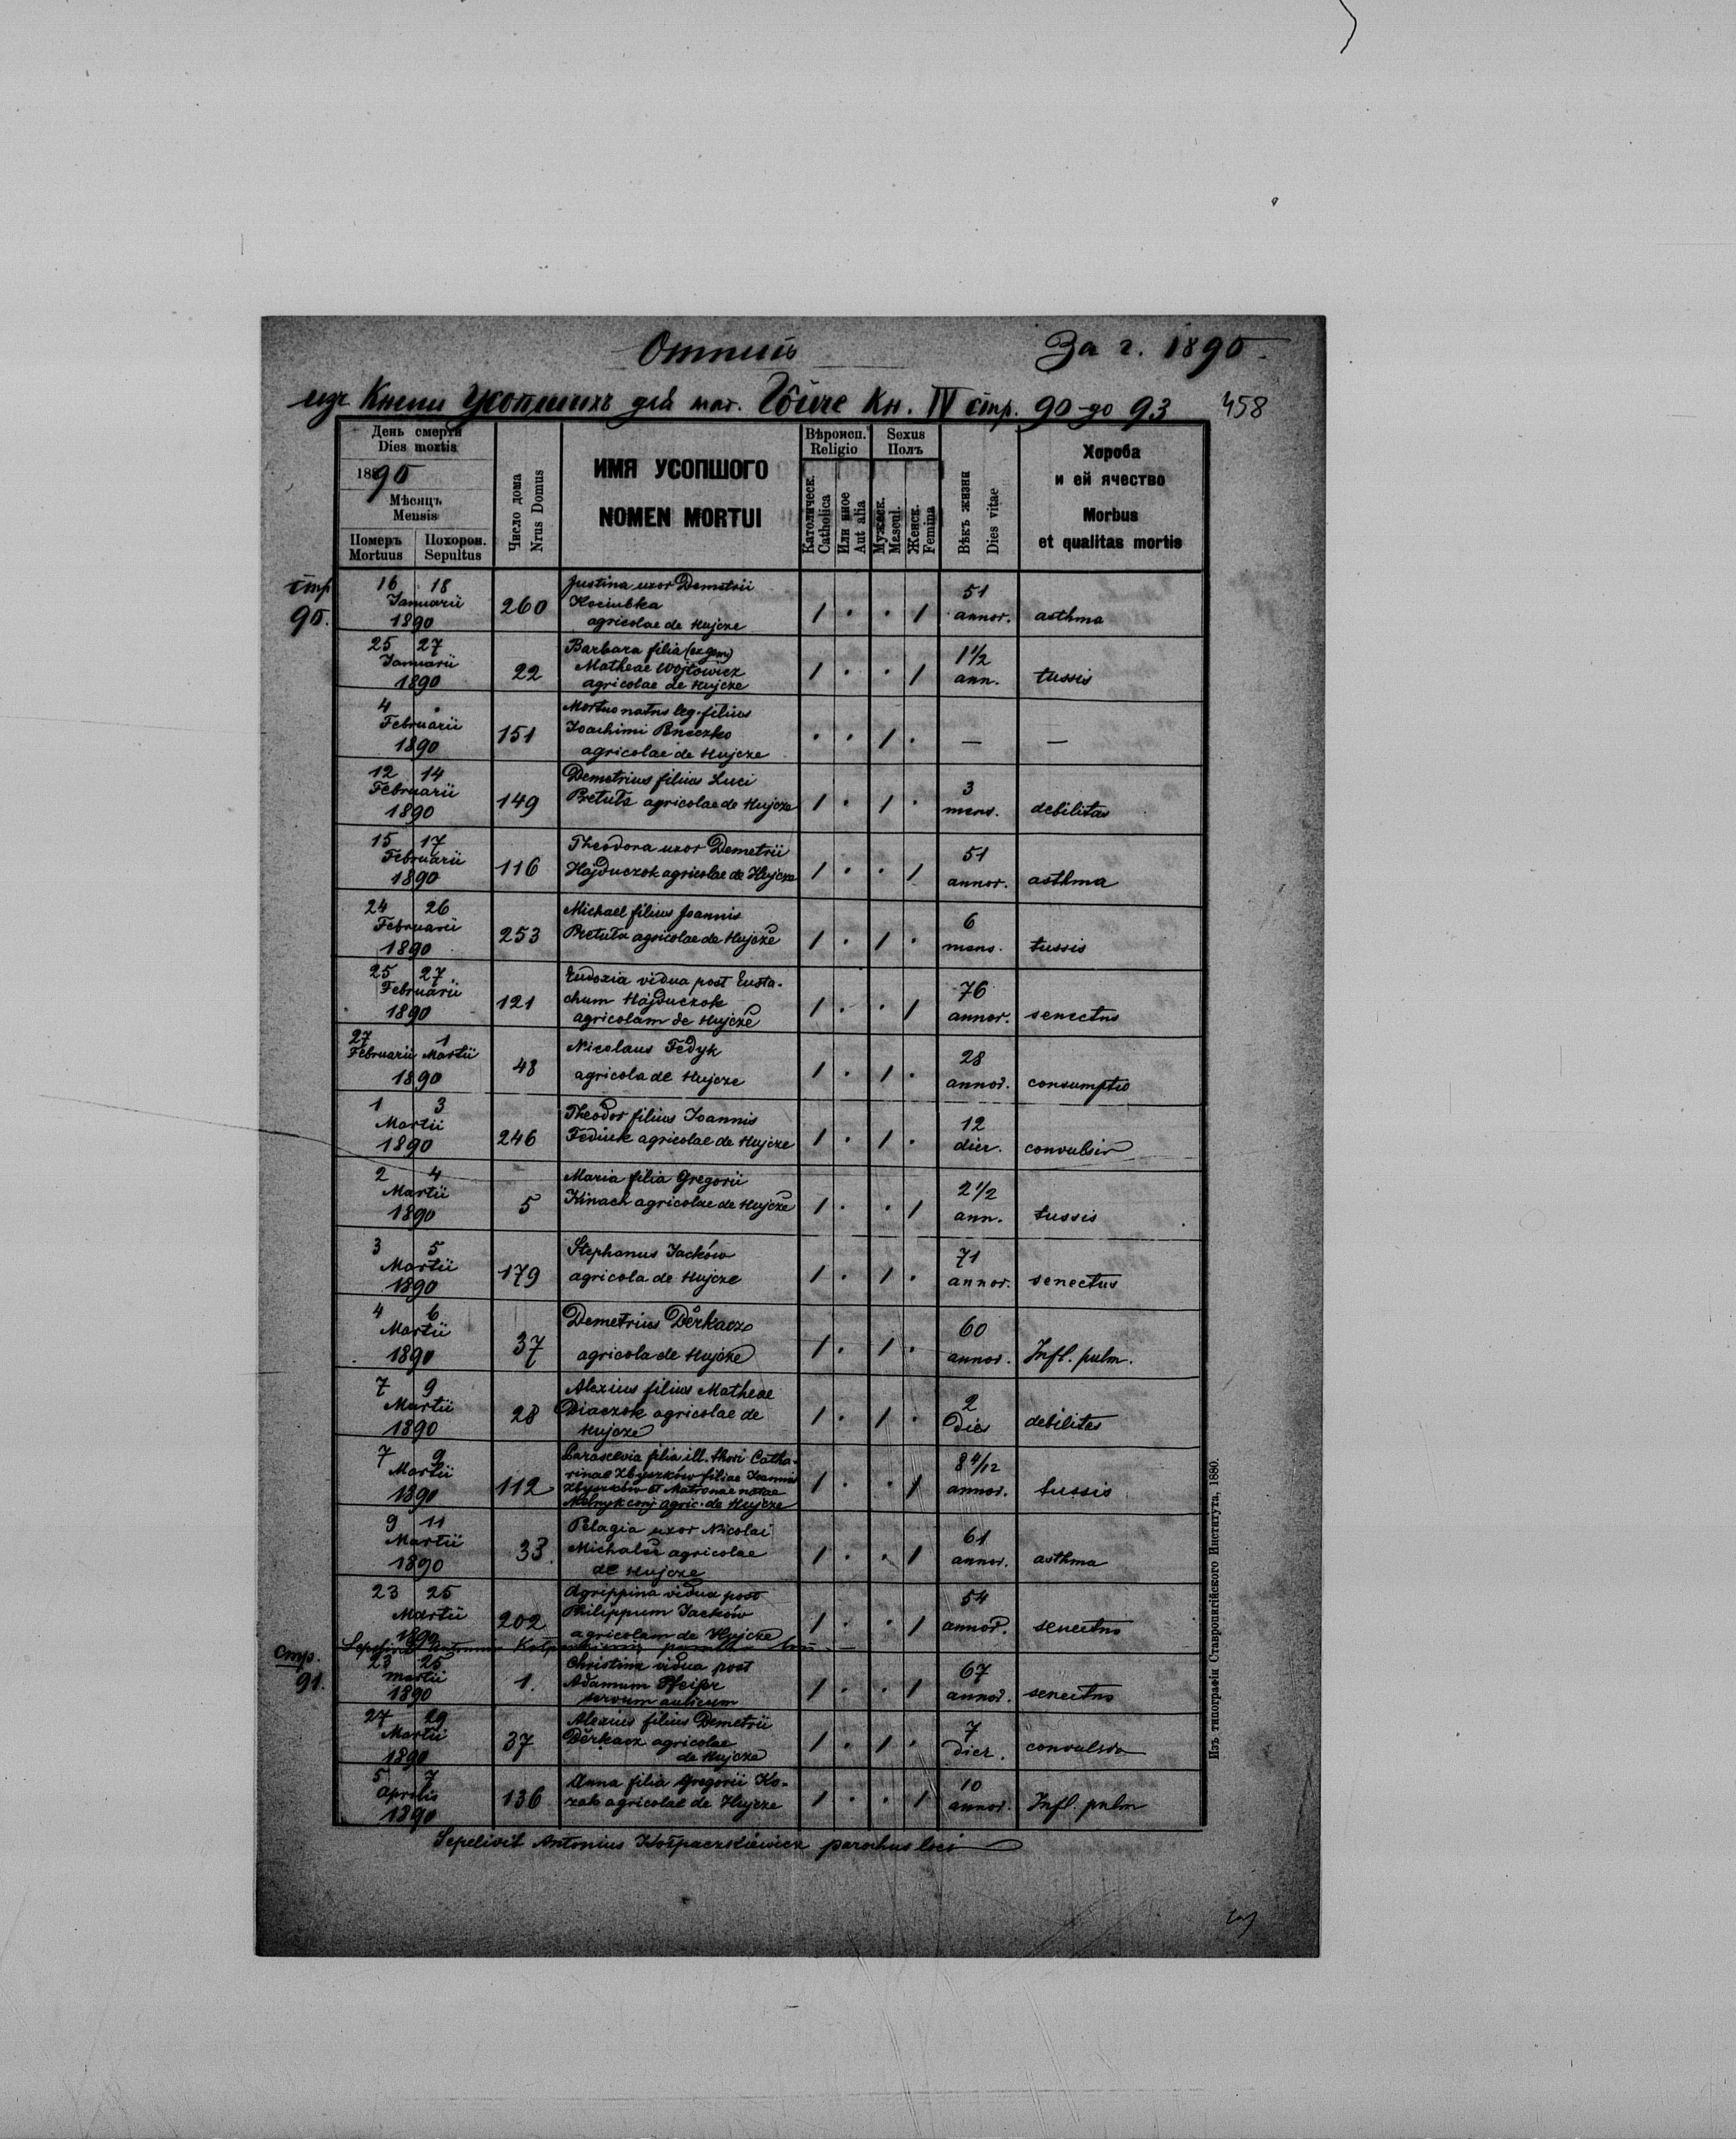 Отписъ За г. 1890.
изъ Книги Усопшихъ для мат. Гойче Кн. IV стр. 90 до 93 458
День смерти
Dies mortis
1890
Мѣсяцъ
Mensis
Померъ Похорон.
Mortuus Sepultus
Число дома
Nrus Domus
ИМЯ УСОПШОГО
NOMEN MORTUI
Вѣроисп.
Religio
Католическ.
Catholica
Или иное
Aut alia
Sexus
Полъ
Мужеск.
Mascul.
Женск.
Femina
Вѣкъ жизни
Dies vitae
Хороба
и ей ячество
Morbus
et qualitas mortis
стр
90.
16 18
Januarii
1890
260
Justina uxor Demetrii
Kociubka
agricolae de Hujcze
1 . . 1
51
annor.
asthma
25 27
Januarii
1890
22
Barbara filia (ex gem)
Matheae Wojtowicz
agricolae de Hujcze
1 . . 1
1 1/2
ann.
tussis
4 .
Februarii
1890
151
Mortuo natus leg. filius
Joachimi
agricolae de Hujcze
. . 1 .
—
—
12 14
Februarii
1890
149
Demetrius filius Luci
Pretuła agricolae de Hujcze
1 . 1 .
3
mens.
debilitas
15 17
Februarii
1890
116
Theodora uxor Demetrii
Hajduczok agricolae de Hujcze
1 . . 1
51
annor.
asthma
24 26
Februarii
1890
253
Michael filius Joannis
Pretuła agricolae de Hujcze
1 . 1 .
6
mens.
tussis
25 27
Februarii
1890
121
Eudoxia vidua post Eusta-
chum Hajduczok
agricolam de Hujcze
1 . . 1
76
annor.
senectus
27 1
Februarii Martii
1890
48
Nicolaus Fedyk
agricola de Hujcze
1 . 1 .
28
annor.
consumptio
1 3
Martii
1890
246
Theodor filius Joannis
Fediuk agricolae de Hujcze
1 . 1 .
12
dier.
convulsio
2 4
Martii
1890
5
Maria filia Gregorii
Kinach agricolae de Hujcze
1 . . 1
2 1/2
ann.
tussis
3 5
Martii
1890
179
Stephanus Jacków
agricola de Hujcze
1 . 1 .
71
annor.
senectus
4 6
Martii
1890
37
Demetrius Děrkacz
agricola de Hujcze
1 . 1 .
60
annor.
Infl. pulm.
7 9
Martii
1890
28
Alexius filius Matheae
Diaczok agricolae de
Hujcze
1 . 1 .
2
dies
debilitas
7 9
Martii
1890
112
Parascevia filia ill. thori Catha-
rinae Zbyszków filiae Joannis
Zbyszków et Matronae natae
Melnyk conj agric. de Hujcze
1 . . 1
8 4/12
annor.
tussis
9 11
Martii
1890
33.
Pelagia uxor Nicolai
Michalec agricolae
de Hujcze
1 . . 1
61
annor.
asthma
23 25
Martii
1890
202
Agrippina vidua post
Philippum Jacków
agricolam de Hujcze
1 . . 1
54
annor.
senectus
Стр.
91.
23 25
Martii
1890
1.
Christina vidua post
Adamum Pfeifer
servum aulicum
1 . . 1
67
annor.
senectus
27 29
Martii
1890
37
Alexius filius Demetrii
Děrkacz agricolae
de Hujcze
1 . 1 .
7
dier.
convulsio
5 7
Aprilis
1890
136
Anna filia Gregorii Ko-
zak agricolae de Hujcze
1 . . 1
10
annor.
Infl. pulm
Sepelivit Antonius Kołpaczkiewicz parochus loci
Изъ типографіи Ставропигійского Института, 1880.